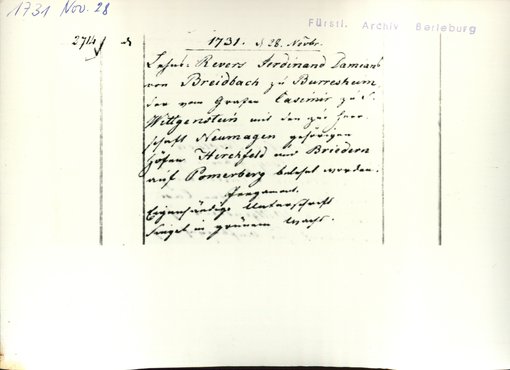 1731 Nov. 28
Fürstl. Archiv Berleburg
2714
1731. d 28. Novbr.
Lehns-Revers Ferdinand Damians
von Breidbach zu Burresheim
der vom Grafen Casimir zu S.
Wittgenstein mit den zur Herr-
schaft Neumagen gehörigen
Höfen Hirchfeld und Briedern
auf Pomerberg belehnt worden.
Pergament.
Eigenhändige Unterschrift
Siegel in grünem Wachs.